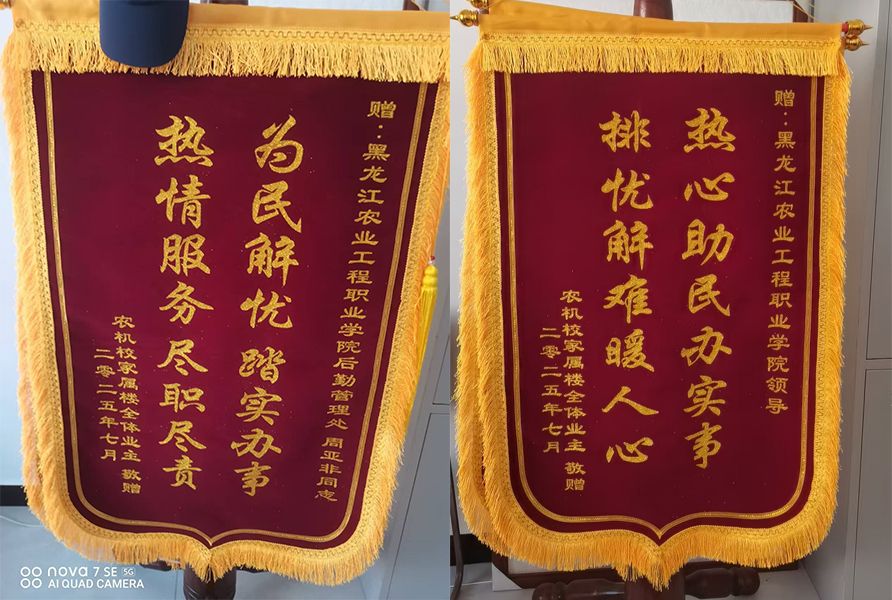 赠：黑龙江农业工程职业学院后勤管理处 周亚非同志
为民解忧 踏实办事
热情服务 尽职尽责
农机校家属楼全体业主 敬赠
二零二五年七月
nova 7 SE 5G
AI QUAD CAMERA
赠：黑龙江农业工程职业学院领导
热心助民办实事
排忧解难暖人心
农机校家属楼全体业主 敬赠
二零二五年七月